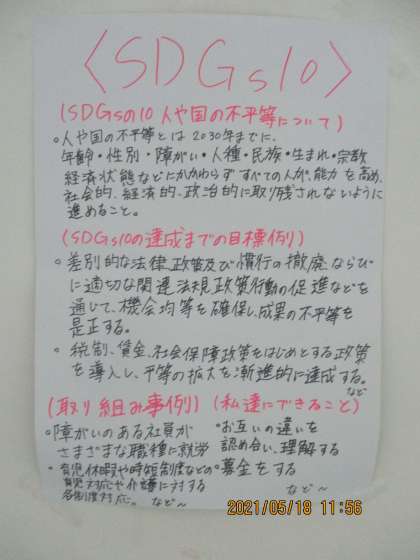 〈SDGs10〉
(SDGsの10 人や国の不平等について)
。人や国の不平等とは2030年までに、
年齢・性別・障がい・人種・民族・生まれ・宗教
経済状態などにかかわらずすべての人が、能力を高め、
社会的、経済的、政治的に取り残されないように
進めること。
(SDGs10の達成までの目標例り)
。差別的な法律、政策及び慣行の撤廃、ならび
に適切な関連法規、政策、行動の促進などを
通じて、機会均等を確保し、成果の不平等を
是正する。
。税制、賃金、社会保障政策をはじめとする政策
を導入し、平等の拡大を漸進的に達成する。
など
(取り組み事例)
・障がいのある社員が
さまざまな職種に就労
・育児休暇や時短制度などの
育児対応や介護に対する
各制度対応。 など〜
(私達にできること)
・お互いの違いを
認め合い、理解する
・募金をする
など〜
2021/05/18 11:56